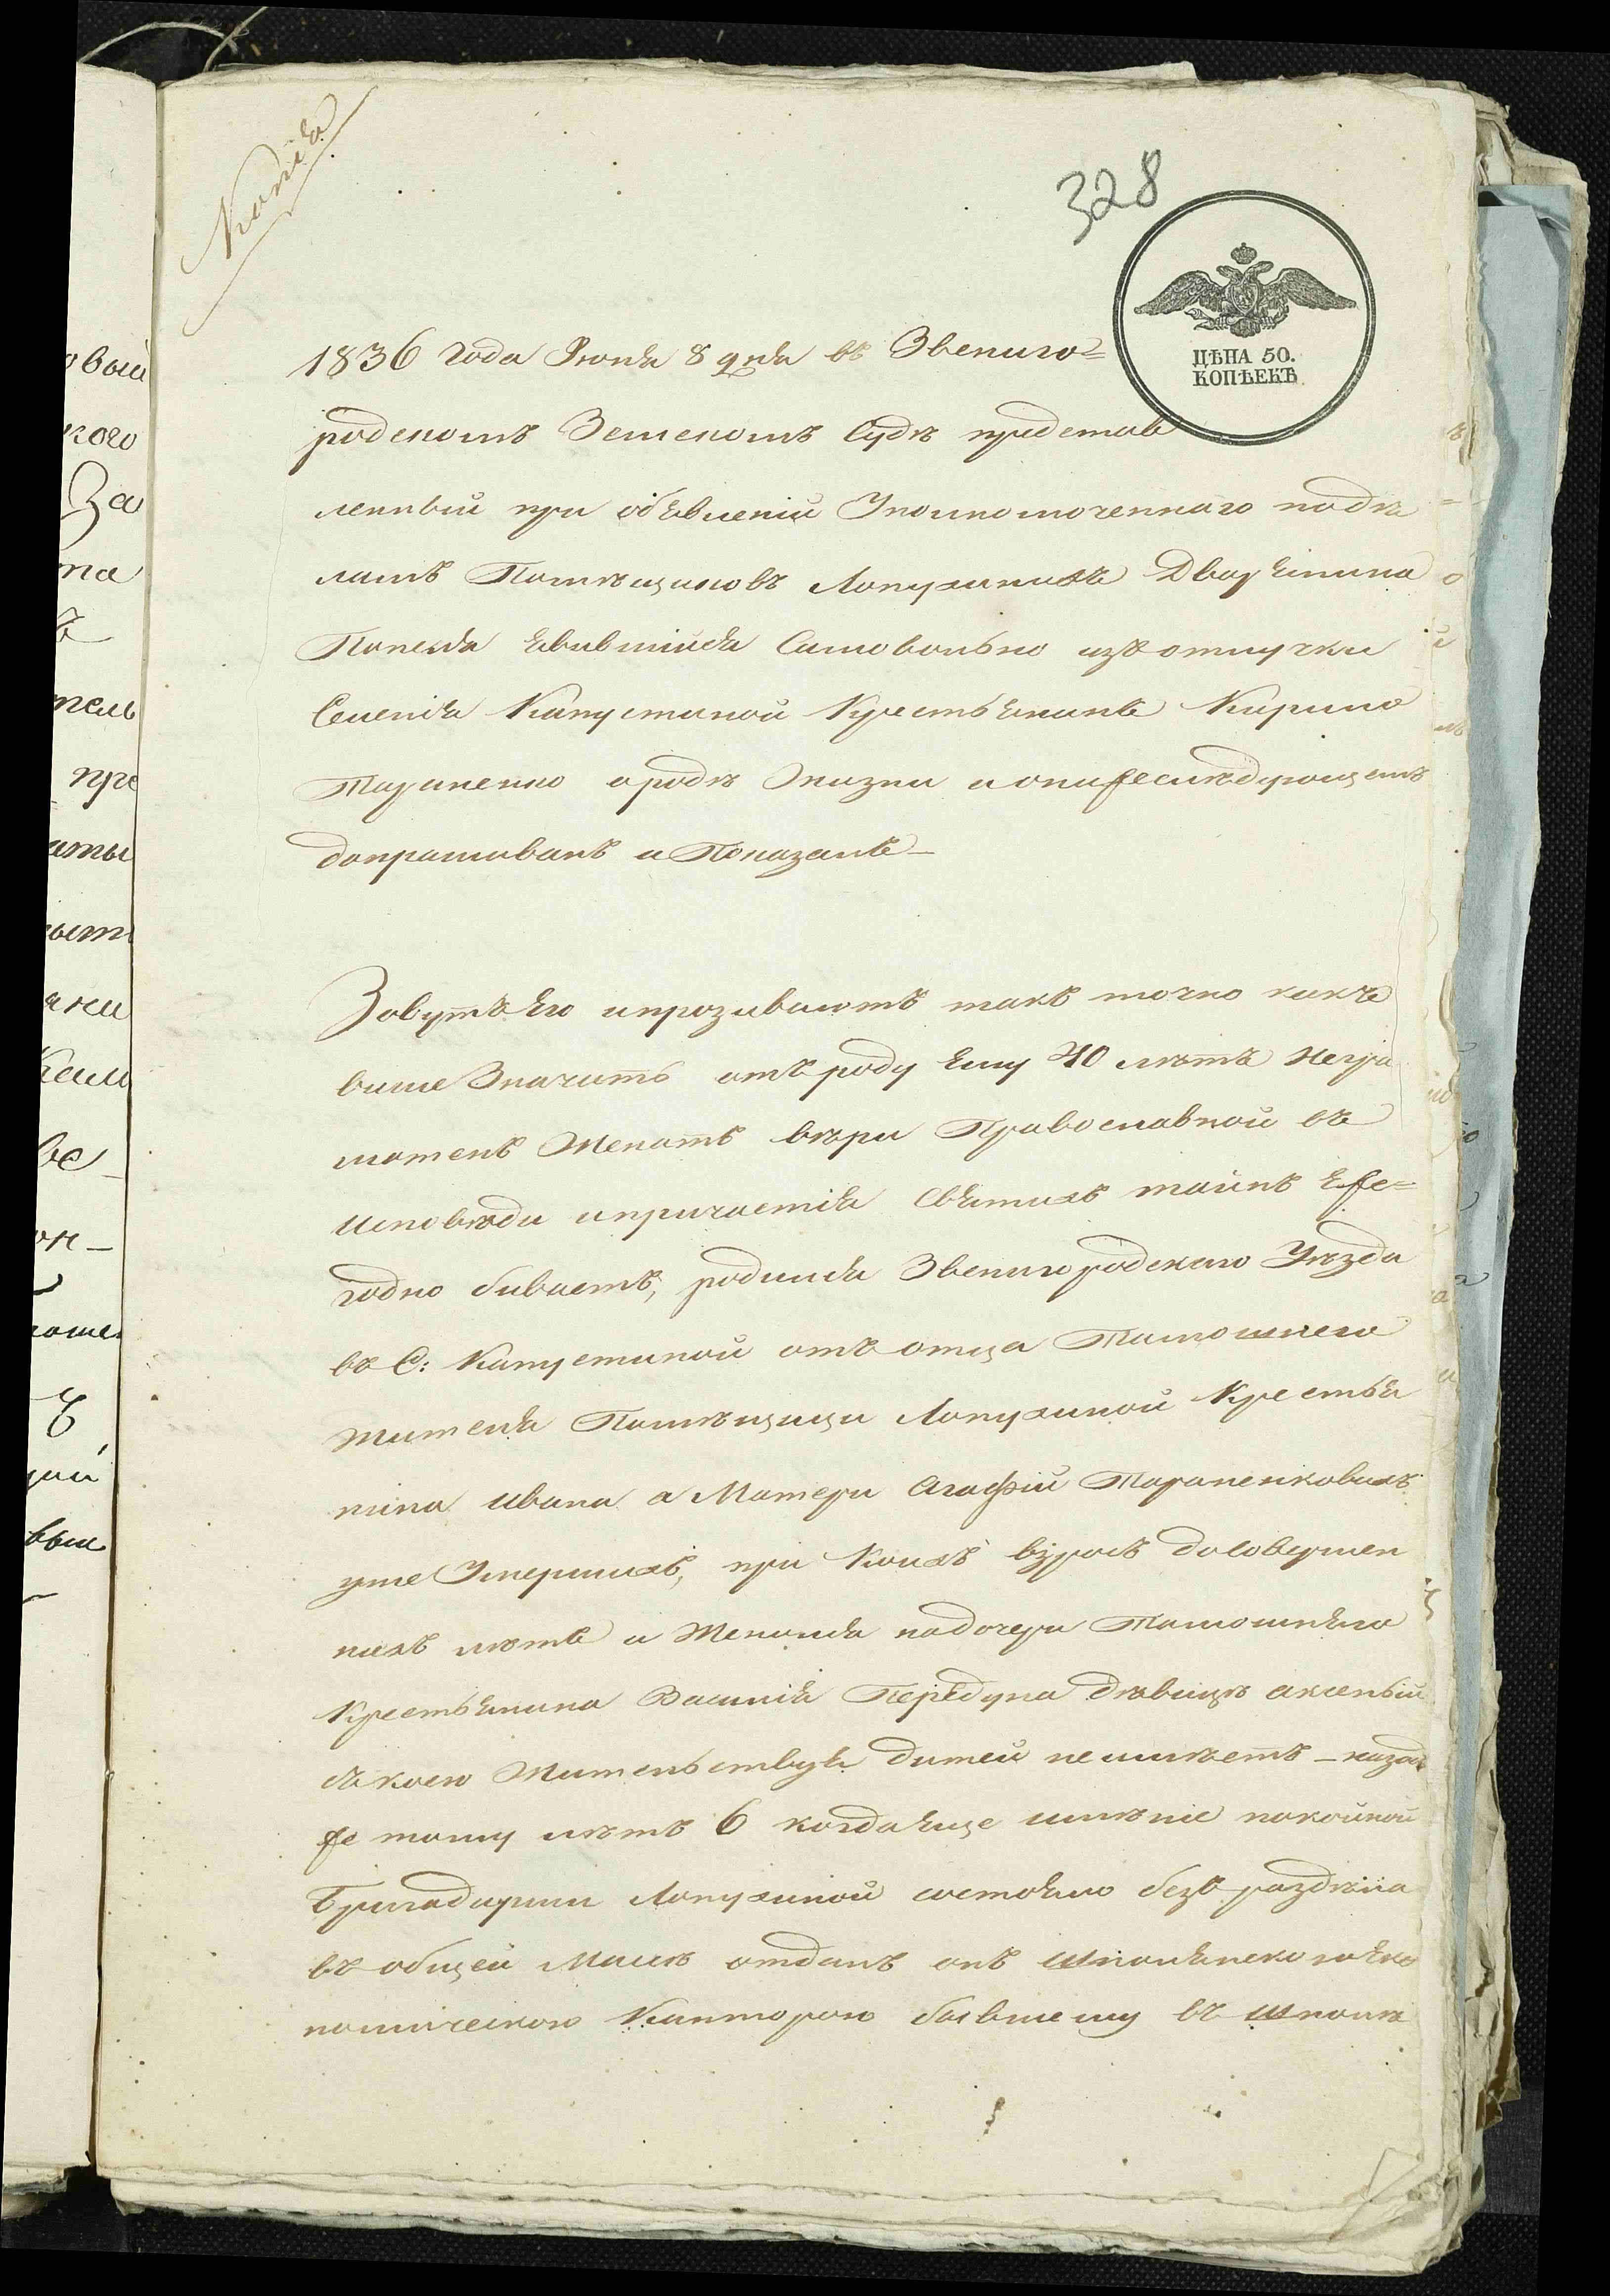 Копія
328
ЦѢНА 50.
КОПѢЕКЪ
1836 года Іюня 8 дня въ Звениго=
родскомъ Земскомъ Судѣ представ
ленный при объявленіи Уполномоченнаго подѣ
ламъ Помѣщиковъ Лопухиныхъ Дворянина
явившійся Самовольно изъ отлучки
Селенія Капустиной Крестьянинъ Кирило
Тараненко ородѣ Жизни и онижеслѣдующемъ
допрашиванъ и Показалъ—
Зовутъ Его ипрозиваютъ такъ точно какъ
више Значить отъ роду Ему 40 лѣтъ Негра
мотенъ Женатъ вѣри Православной въ
Исповѣди ипричастія Святихъ тайнъ Еже=
годно биваетъ, родился Звенигородскаго Уѣзда
въ С: Капустиной отъ отца Тамошнего
Жителя Помѣщици Лопухиной Крестья
нина Ивана а Матери Агафіи Тараненковихъ
уже Умершихъ, при Коихъ взросъ досовершен
нихъ лѣтъ и Женился надочери Тамошняго
Крестьянина Василія дѣвицѣ аксеніи
съ коею Жительствуя дитей неимѣетъ — назадъ
же тому лѣтъ 6 когда еще имѣніе покойной
Бригадирши Лопухиной состояло безъ раздѣла
въ общей Массѣ отданъ онъ Шполянскою эко
номическою Канторою бывшему въ Шполѣ